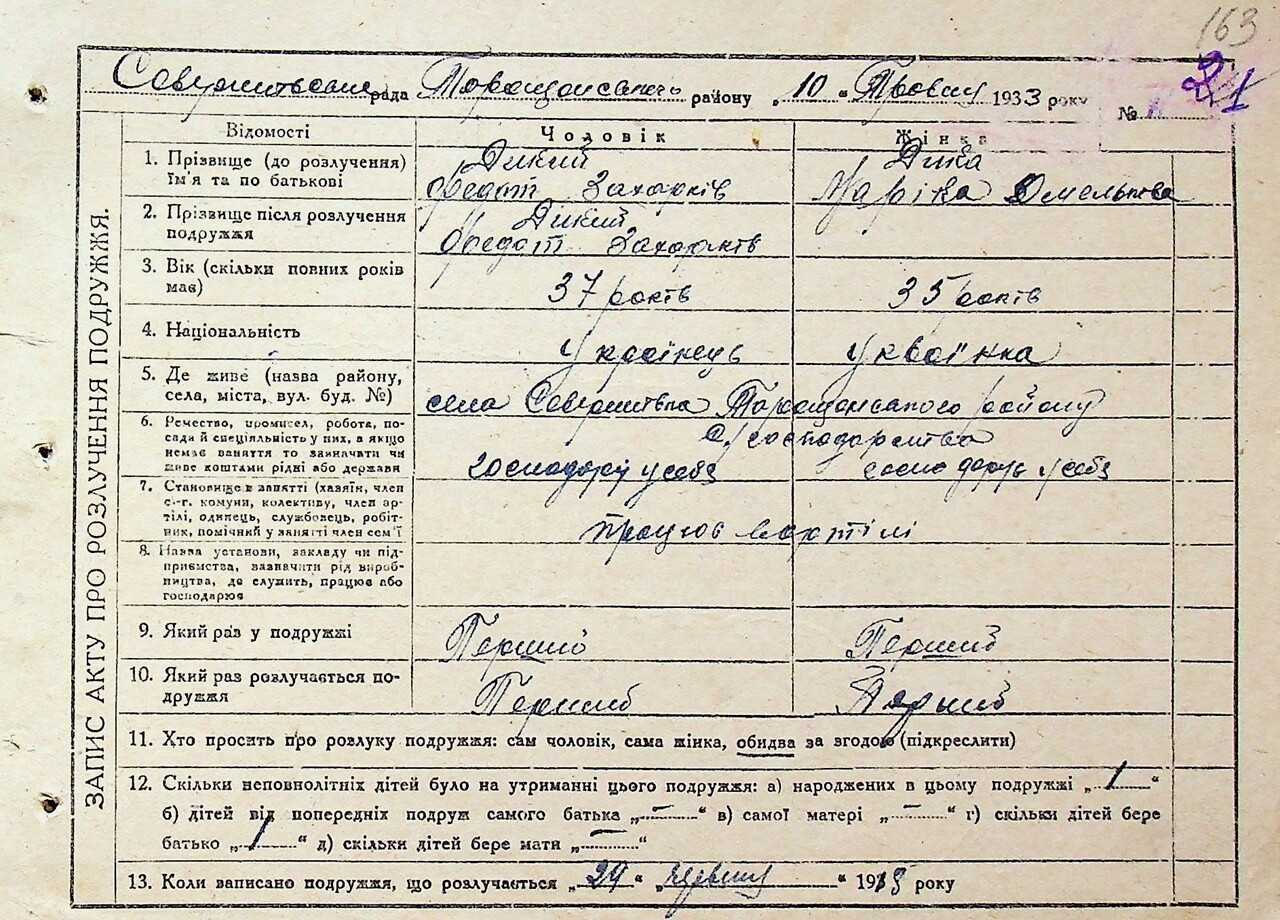 163
рада Таращанського району „ 10 “ 1933 року № 21
Відомості Чоловік Жінка
1. Прізвище (до розлучення) Дикий Дика
Їм'я та по батькові Федот Захарків Омелькова
2. Прізвище після розлучення Дикий
подружжя Федот Захарків
3. Вік (скільки повних років
має) 37 років 35 років
4. Національність Українець Українка
5. Де живе (назва району,
села, міста, вул. буд. №) села Таращанського району
6. Ремество, промисел, робота, по-
сада й спеціяльність у них, а якщо господарства
немає заняття то зазначати чи
живе коштами рідні або держави господарує у себе господарує у себе
7. Становище в занятті (хазяїн, член
с.-г. комуни, колективу, член ар-
тілі, одинець, службовець, робіт-
ник, помічний у занятті член сем'ї працює в артілі
8. Назва установи, закладу чи під-
приємства, зазначати рід вироб-
ництва, де служить, працює або
господарює
9. Який раз у подружжі Перший Перший
10. Який раз розлучається по-
дружжя Перший Перший
11. Хто просить про розлуку подружжя: сам чоловік, сама жінка, обидва за згодою (підкреслити)
12. Скільки неповнолітніх дітей було на утриманні цього подружжя: а) народжених в цьому подружжі „ 1 “
б) дітей від попередніх подруж самого батька „ – “ в) самої матері „ – “ г) скільки дітей бере
батько „ 1 “ д) скільки дітей бере мати „ – “
13. Коли записано подружжя, що розлучається „ 29 “ „ червня “ 19 року
ЗАПИС АКТУ ПРО РОЗЛУЧЕННЯ ПОДРУЖЖЯ.